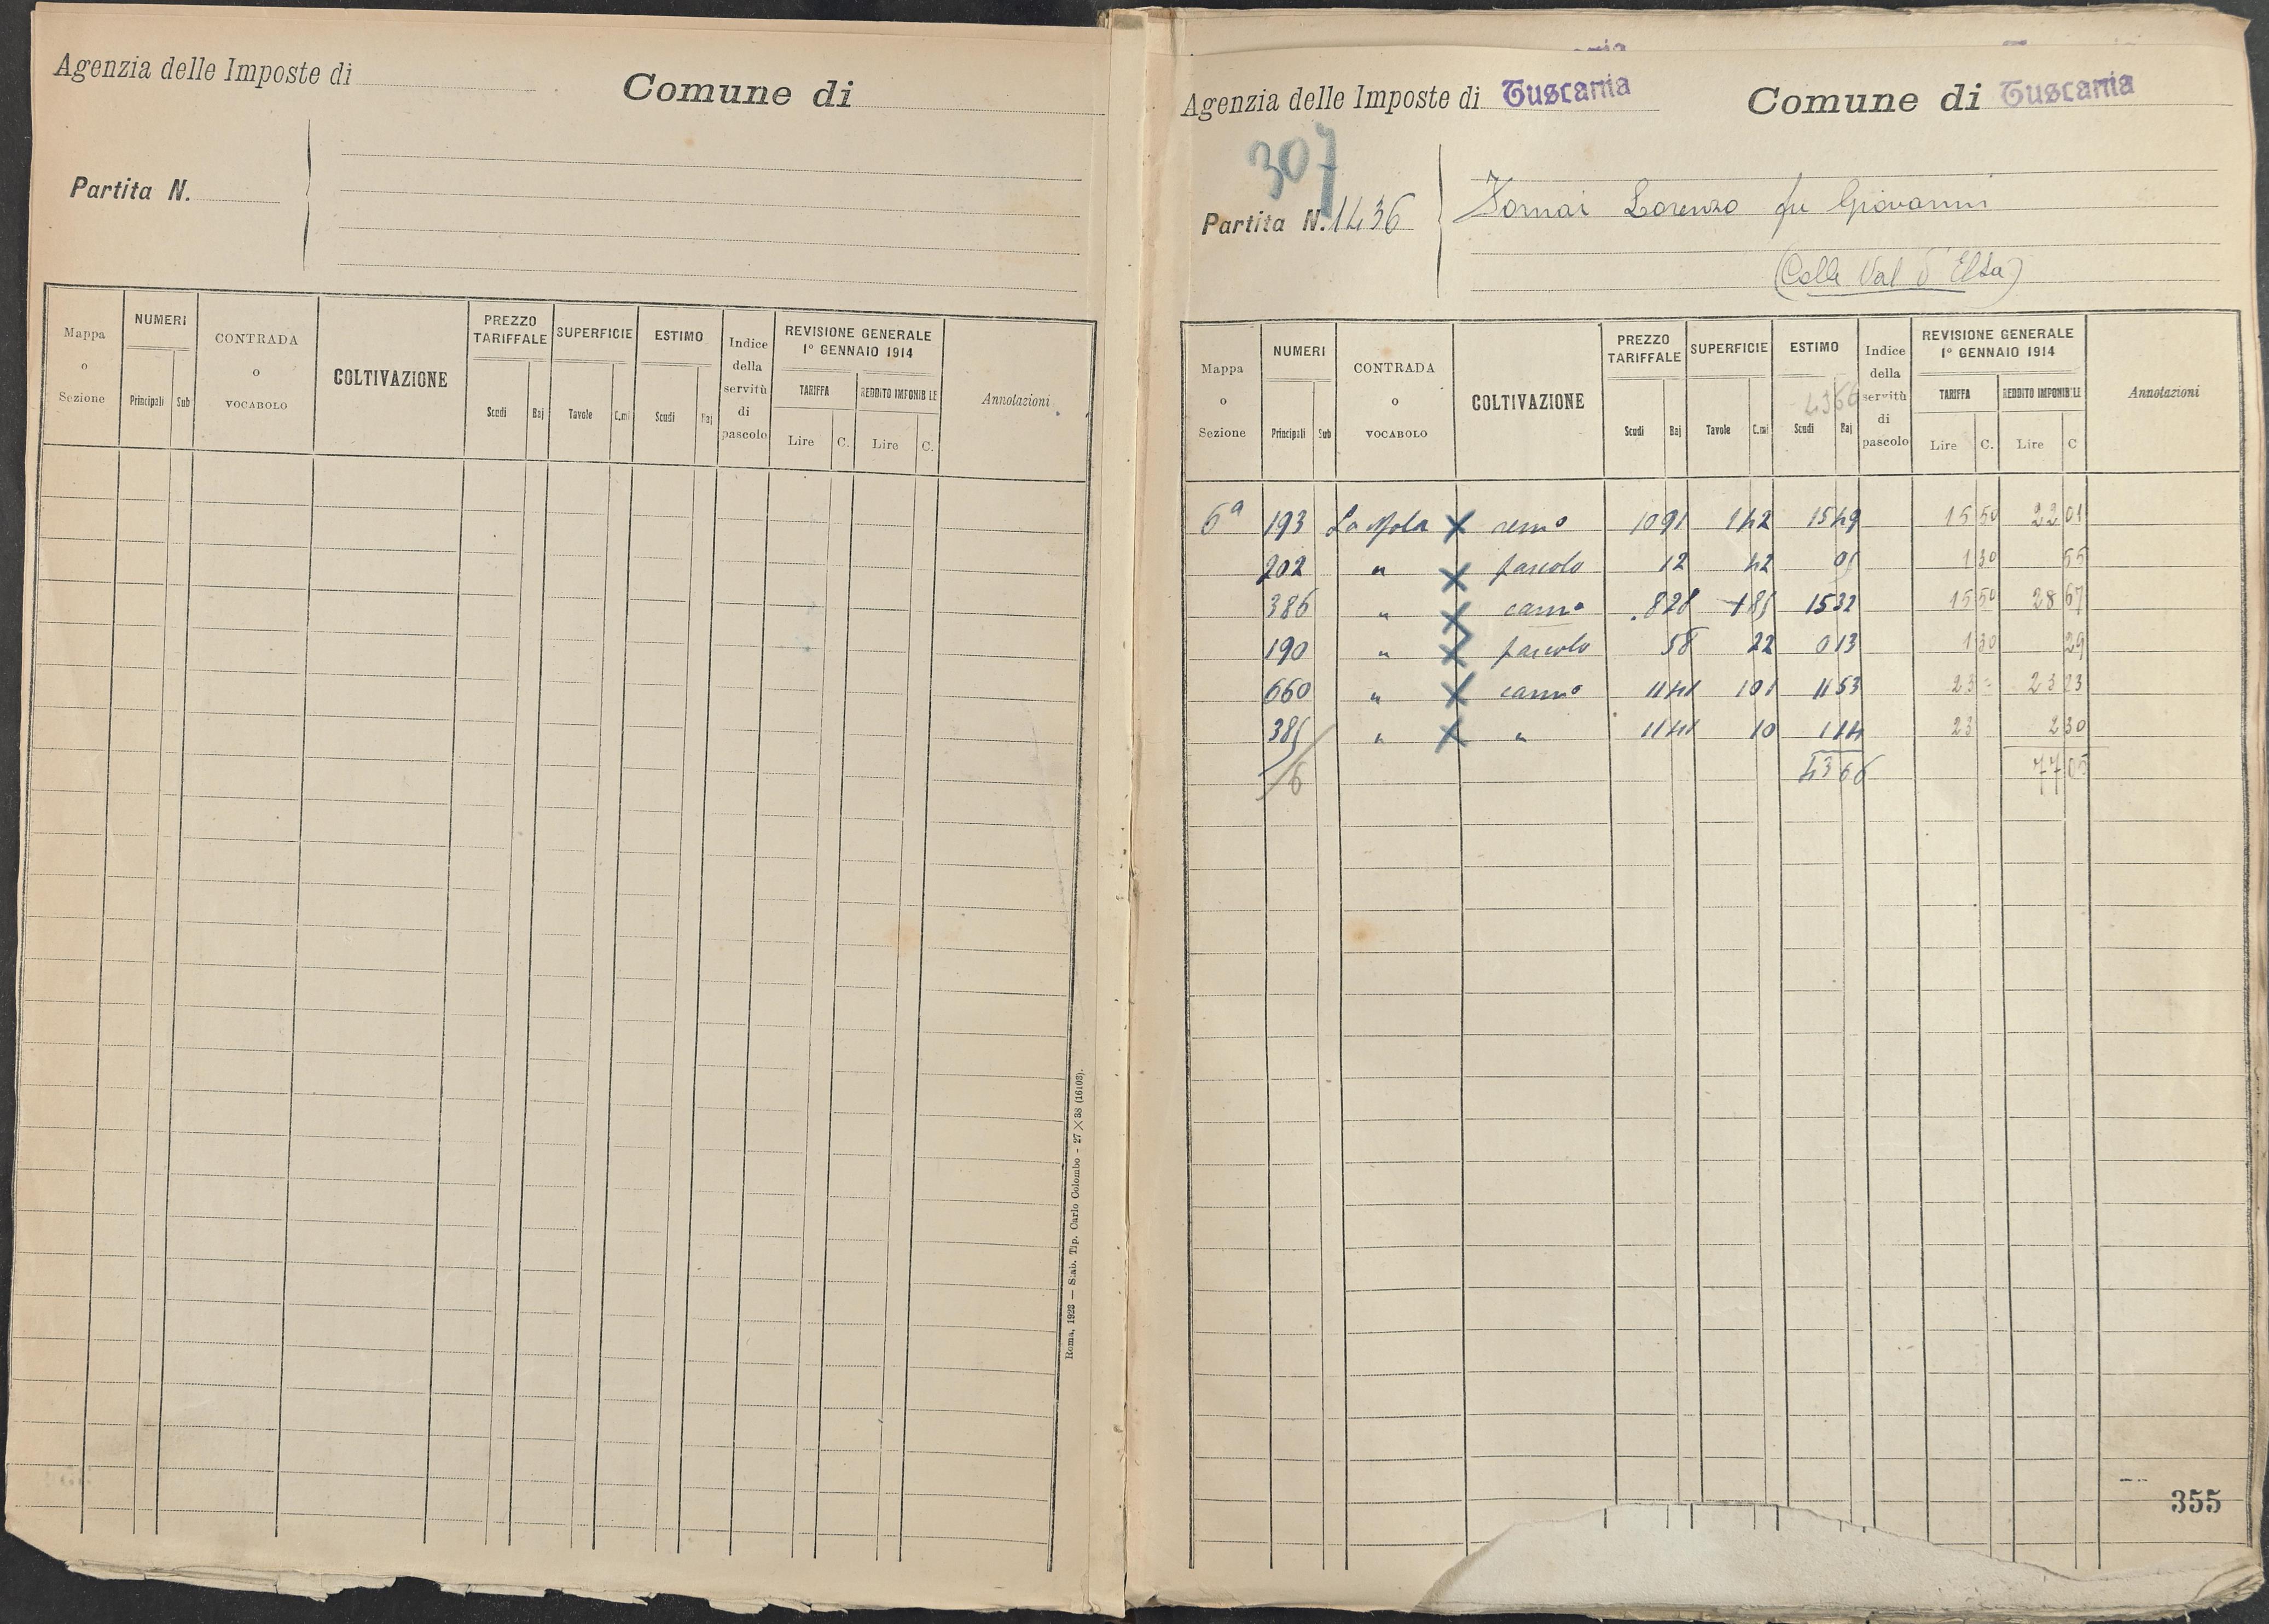 Agenzia delle Imposte di
Comune di
Partita N.
Mappa o Sezione
NUMERI
Principali Sub
CONTRADA o VOCABOLO
COLTIVAZIONE
PREZZO TARIFFALE
Scudi Baj
SUPERFICIE
Tavole C.mi
ESTIMO
Scudi Baj
Indice della servitù di pascolo
REVISIONE GENERALE
1° GENNAIO 1914
TARIFFA REDDITO IMPONIBILE
Lire C. Lire C.
Annotazioni
Roma, 1923 — Stab. Tip. Carlo Colombo - 27 X 38 (16103).
Agenzia delle Imposte di Tuscania
Comune di Tuscania
307
Partita N. 1436
Lorenzo fu Giovanni
(Colle Val d'Elsa)
Mappa o Sezione
NUMERI
Principali Sub
CONTRADA o VOCABOLO
COLTIVAZIONE
PREZZO TARIFFALE
Scudi Baj
SUPERFICIE
Tavole C.mi
ESTIMO
4366
Scudi Baj
Indice della servitù di pascolo
REVISIONE GENERALE
1° GENNAIO 1914
TARIFFA REDDITO IMPONIBILE
Lire C. Lire C
Annotazioni
6a 193 La Mola X semo 10 91 1 42 15 49 15 50 22 01
202 " X pascolo 12 42 05 1 30 55
386 " X canno 8 28 1 85 15 32 15 50 28 67
190 " X pascolo 58 22 0 13 1 30 29
660 " X canno 11 41 1 01 11 53 23 - 23 23
385 " X " 11 41 10 1 14 23 2 30
6 43 66 77 05
355